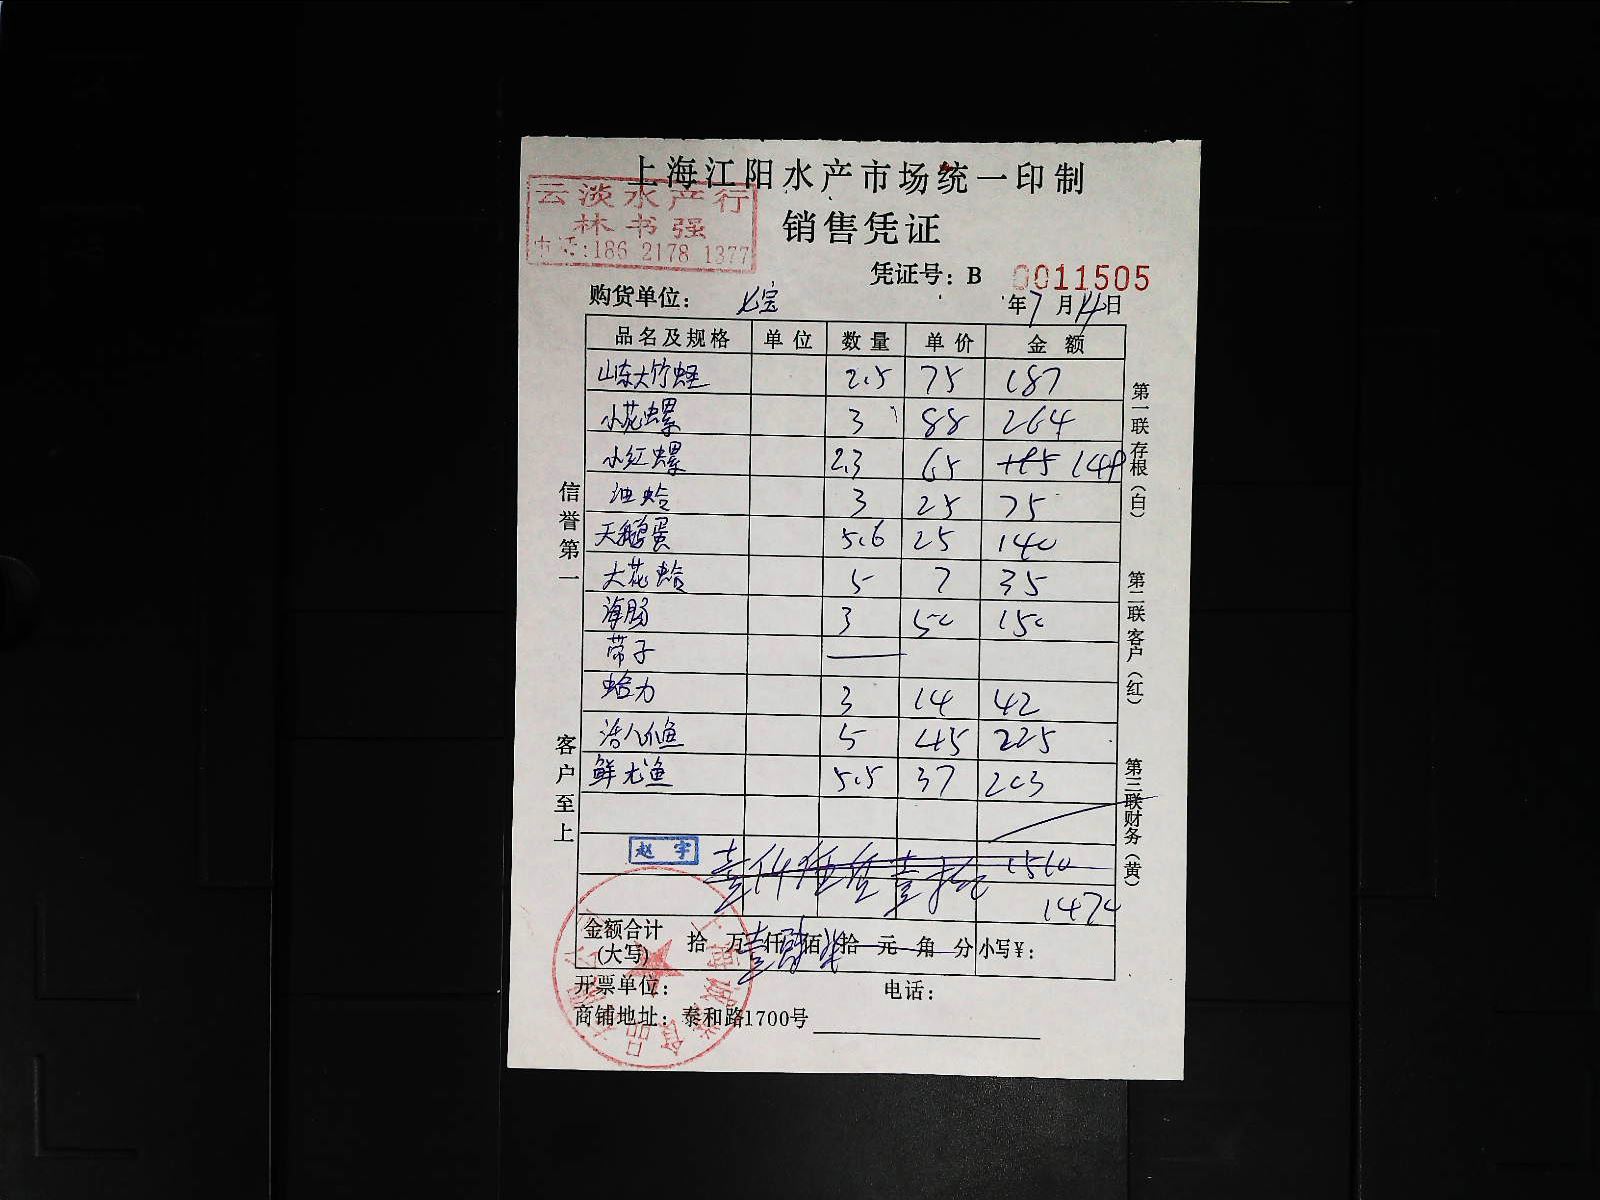 上海江阳水产市场统一印制
云淡水产行
林书强
电话:186 2178 1377
销售凭证
凭证号: B 0011505
购货单位: 七宝 年7月14日
品名及规格 单位 数量 单价 金额
山东大竹蛏 2.5 75 187
小花螺 3 88 264
小红螺 2.3 65 149
油蛤 3 25 75
天鹅蛋 5.6 25 140
大花蛤 5 7 35
海肠 3 50 150
带子
蛤力 3 14 42
活八爪鱼 5 45 225
鲜尤鱼 5.5 37 203
赵宇
壹仟伍佰壹拾元 1510
1474
金额合计(大写) 拾 万 仟 佰 拾 元 角 分 小写¥:
开票单位: 电话:
商铺地址: 泰和路1700号
信誉第一
客户至上
第一联存根(白)
第二联客户(红)
第三联财务(黄)